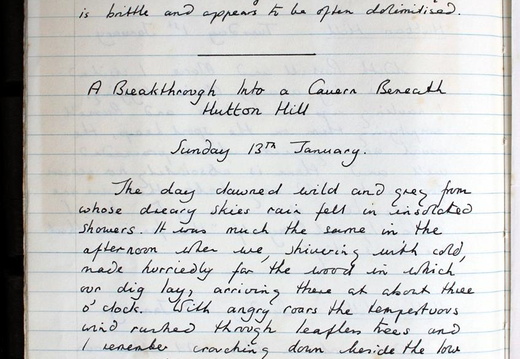 is brittle and appears to be often dolimitised.
A Breakthrough Into a Cavern Beneath
Hutton Hill
Sunday 13TH January.
The day dawned wild and grey from
whose dreary skies rain fell in insolated
showers. It was much the same in the
afternoon when we, shivering with cold,
made hurriedly for the wood in which
our dig lay, arriving there at about three
o'clock. With angry roars the tempestuous
wind rushed through leafless trees and
I remember crouching down beside the low